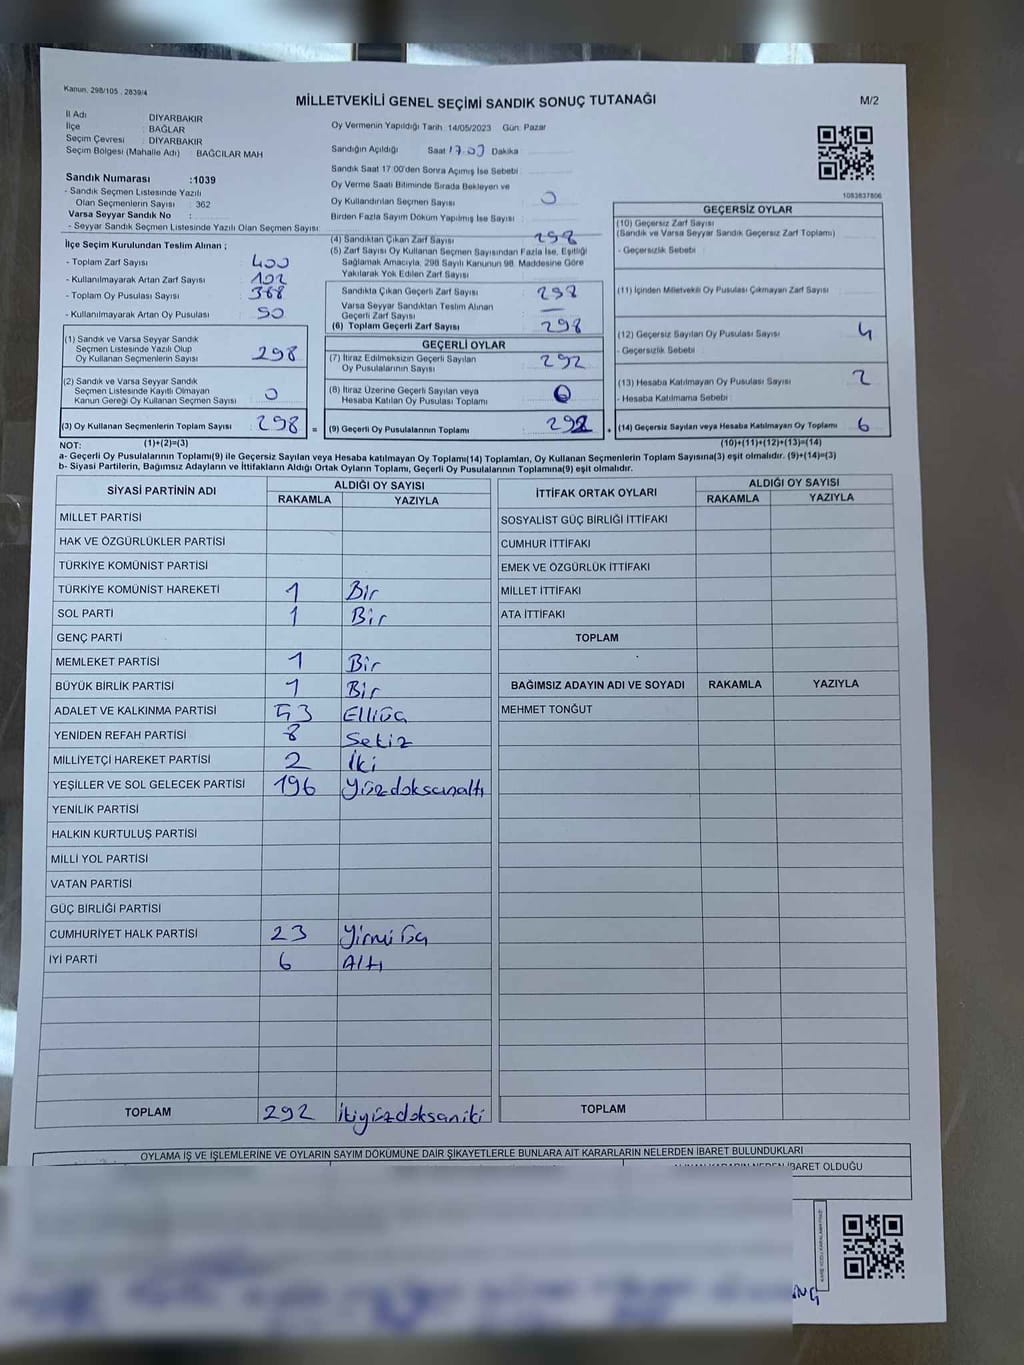 Kanun. 298/105 , 2839/4
MİLLETVEKİLİ GENEL SEÇİMİ SANDIK SONUÇ TUTANAĞI
M/2
İl Adı DİYARBAKIR
İlçe : BAĞLAR
Seçim Çevresi : DİYARBAKIR
Seçim Bölgesi (Mahalle Adı) : BAĞCILAR MAH
Sandık Numarası :1039
- Sandık Seçmen Listesinde Yazılı
Olan Seçmenlerin Sayısı : 362
Varsa Seyyar Sandık No :
- Seyyar Sandık Seçmen Listesinde Yazılı Olan Seçmen Sayısı:
İlçe Seçim Kurulundan Teslim Alınan ;
- Toplam Zarf Sayısı 400
- Kullanılmayarak Artan Zarf Sayısı 102
- Toplam Oy Pusulası Sayısı 388
- Kullanılmayarak Artan Oy Pusulası 90
(1) Sandık ve Varsa Seyyar Sandık
Seçmen Listesinde Yazılı Olup
Oy Kullanan Seçmenlerin Sayısı 298
(2) Sandık ve Varsa Seyyar Sandık
Seçmen Listesinde Kayıtlı Olmayan
Kanun Gereği Oy Kullanan Seçmen Sayısı 0
(3) Oy Kullanan Seçmenlerin Toplam Sayısı 298
Oy Vermenin Yapıldığı Tarih: 14/05/2023 Gün: Pazar
Sandığın Açıldığı Saat 17 00 Dakika
Sandık Saat 17:00'den Sonra Açımış İse Sebebi
Oy Verme Saati Bitiminde Sırada Bekleyen ve
Oy Kullandırılan Seçmen Sayısı 0
Birden Fazla Sayım Döküm Yapılmış İse Sayısı
(4) Sandıktan Çıkan Zarf Sayısı 298
(5) Zarf Sayısı Oy Kullanan Seçmen Sayısından Fazla İse, Eşitliği
Sağlamak Amacıyla, 298 Sayılı Kanunun 98. Maddesine Göre
Yakılarak Yok Edilen Zarf Sayısı
Sandıkta Çıkan Geçerli Zarf Sayısı 298
Varsa Seyyar Sandıktan Teslim Alınan
Geçerli Zarf Sayısı —
(6) Toplam Geçerli Zarf Sayısı 298
GEÇERLİ OYLAR
(7) İtiraz Edilmeksizin Geçerli Sayılan
Oy Pusulalarının Sayısı 292
(8) İtiraz Üzerine Geçerli Sayılan veya
Hesaba Katılan Oy Pusulası Toplamı 0
= (9) Geçerli Oy Pusulalarının Toplamı 292
1083837806
GEÇERSİZ OYLAR
(10) Geçersiz Zarf Sayısı
(Sandık ve Varsa Seyyar Sandık Geçersiz Zarf Toplamı)
- Geçersizlik Sebebi
(11) İçinden Milletvekili Oy Pusulası Çıkmayan Zarf Sayısı
(12) Geçersiz Sayılan Oy Pusulası Sayısı 4
- Geçersizlik Sebebi
(13) Hesaba Katılmayan Oy Pusulası Sayısı 2
- Hesaba Katılmama Sebebi
+ (14) Geçersiz Sayılan veya Hesaba Katılmayan Oy Toplamı 6
NOT: (1)+(2)=(3) (10)+(11)+(12)+(13)=(14)
a- Geçerli Oy Pusulalarının Toplamı(9) ile Geçersiz Sayılan veya Hesaba katılmayan Oy Toplamı(14) Toplamları, Oy Kullanan Seçmenlerin Toplam Sayısına(3) eşit olmalıdır. (9)+(14)=(3)
b- Siyasi Partilerin, Bağımsız Adayların ve İttifakların Aldığı Ortak Oyların Toplamı, Geçerli Oy Pusulalarının Toplamına(9) eşit olmalıdır.
SİYASİ PARTİNİN ADI ALDIĞI OY SAYISI
RAKAMLA YAZIYLA
MİLLET PARTİSİ
HAK VE ÖZGÜRLÜKLER PARTİSİ
TÜRKİYE KOMÜNİST PARTİSİ
TÜRKİYE KOMÜNİST HAREKETİ 1 Bir
SOL PARTİ 1 Bir
GENÇ PARTİ
MEMLEKET PARTİSİ 1 Bir
BÜYÜK BİRLİK PARTİSİ 1 Bir
ADALET VE KALKINMA PARTİSİ 53 Elliüç
YENİDEN REFAH PARTİSİ 8 Sekiz
MİLLİYETÇİ HAREKET PARTİSİ 2 İki
YEŞİLLER VE SOL GELECEK PARTİSİ 196 Yüzdoksanaltı
YENİLİK PARTİSİ
HALKIN KURTULUŞ PARTİSİ
MİLLİ YOL PARTİSİ
VATAN PARTİSİ
GÜÇ BİRLİĞİ PARTİSİ
CUMHURİYET HALK PARTİSİ 23 Yirmi üç
İYİ PARTİ 6 Altı
TOPLAM 292 İkiyüzdoksaniki
İTTİFAK ORTAK OYLARI ALDIĞI OY SAYISI
RAKAMLA YAZIYLA
SOSYALİST GÜÇ BİRLİĞİ İTTİFAKI
CUMHUR İTTİFAKI
EMEK VE ÖZGÜRLÜK İTTİFAKI
MİLLET İTTİFAKI
ATA İTTİFAKI
TOPLAM
BAĞIMSIZ ADAYIN ADI VE SOYADI RAKAMLA YAZIYLA
MEHMET TONĞUT
TOPLAM
OYLAMA İŞ VE İŞLEMLERİNE VE OYLARIN SAYIM DÖKÜMÜNE DAİR ŞİKAYETLERLE BUNLARA AİT KARARLARIN NELERDEN İBARET BULUNDUKLARI
İBARET OLDUĞU